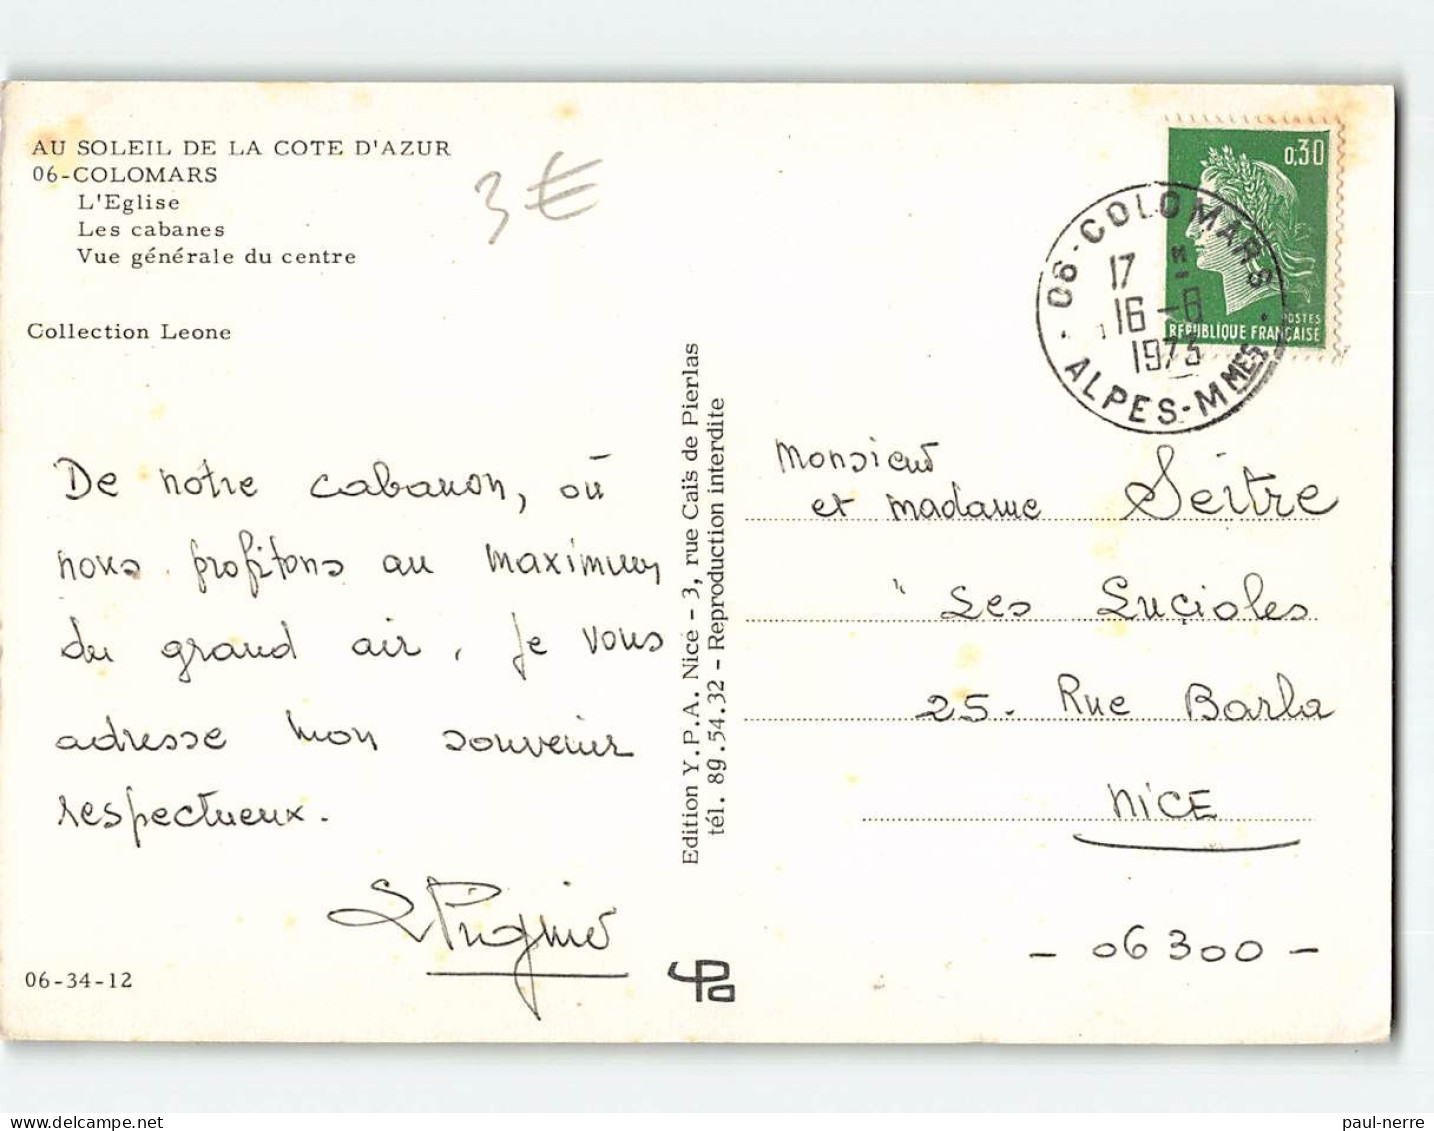 AU SOLEIL DE LA COTE D'AZUR
06-COLOMARS
L'Eglise
Les cabanes
Vue générale du centre
Collection Leone
3€
De notre cabanon, où
nous profitons au maximum
du grand air, je vous
adresse mon souvenir
respectueux.
06-34-12
Edition Y.P.A. Nice - 3, rue Caïs de Pierlas
tél. 89.54.32 - Reproduction interdite
0,30
POSTES
REPUBLIQUE FRANÇAISE
06-COLOMARS
17 H
16-8
1973
ALPES-MMES
Monsieur
et madame Seitre
"Les Luçioles
25. Rue Barla
NICE
- 06300 -
paul-nerre